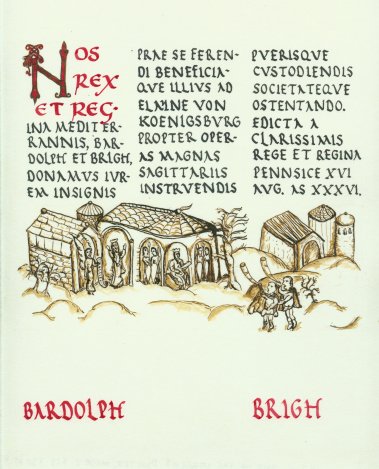 NOS
REX
ET REG-
INA MEDITER-
RANNIS, BAR-
DOLPH ET BRIGH,
DONAMVS IVR-
EM INSIGNIS
PRAE SE FEREN-
DI BENEFICIA-
QVE ILLIVS AD
ELAINE VON
KOENIGSBVRG
PROPTER OPER-
AS MAGNAS
SAGITTARIIS
INSTRVENDIS
PVERISQVE
CVSTODIENDIS
SOCIETATEQVE
OSTENTANDO.
EDICTA A
CLARISSIMIS
REGE ET REGINA
PENNSICE XVI
AVG. AS XXXVI.
BARDOLPH
BRIGH